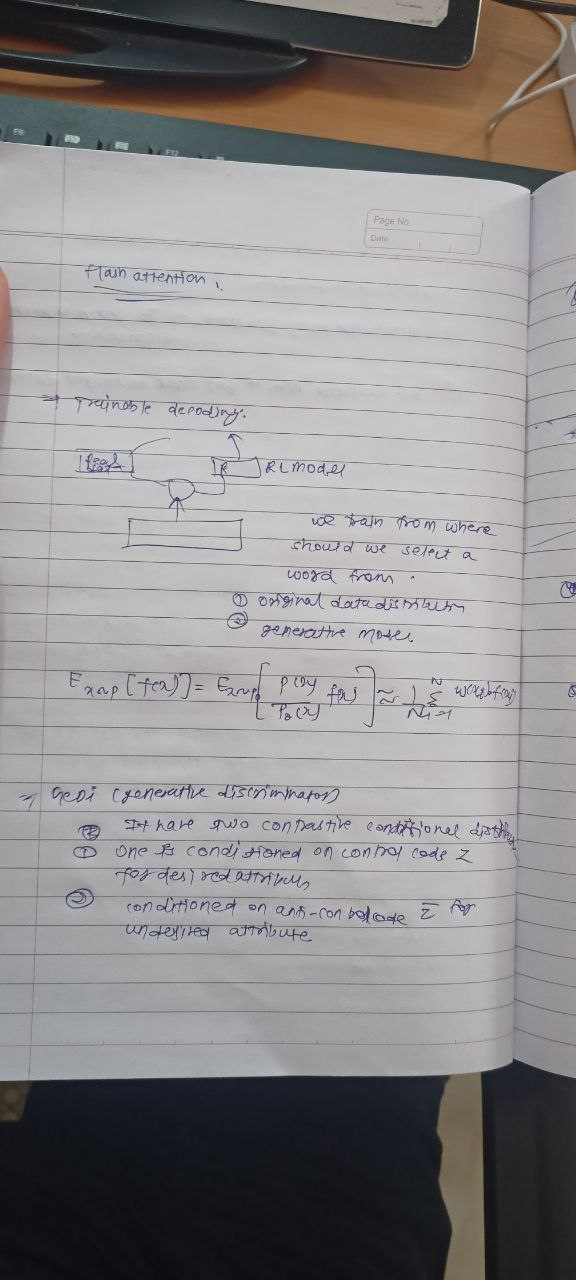 F9
F12
Page No.
Date
flash attention.
⇒ Trainable decoding.
Real
R RL model
we train from where
should we select a
word from.
① original data distributn
② generative model.
E x~p [f(x)] = E x~p₀ [ p(x) / p₀(x) f(x) ] ≈ 1/N Σ i=1 N w(xi) f(xi)
⇒ GeDi (generative discriminator)
It have two contrastive conditional distribu
① one is conditioned on control code Z
for desired attribute
② conditioned on anti-control code Z̄ for
undesired attribute